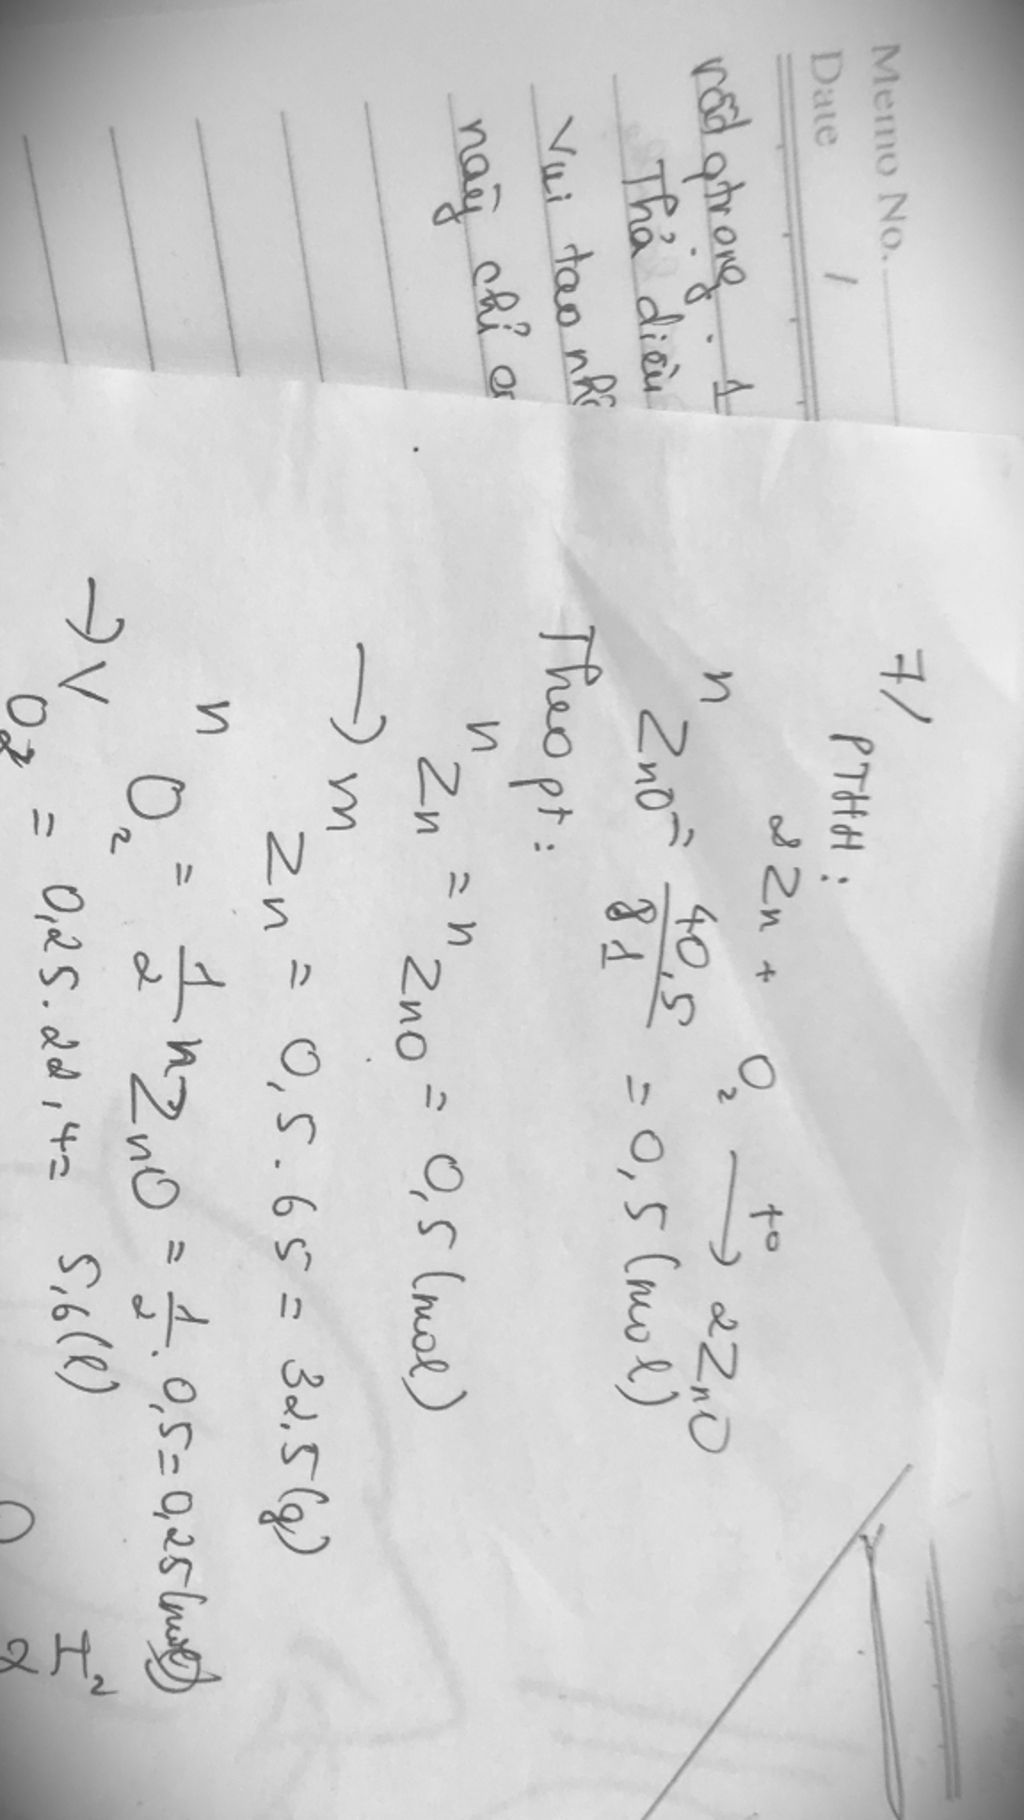 Memo No.
Date /
Thả diều
vui tao
này chỉ
7/
PTHH:
2Zn + O₂ →t° 2ZnO
n ZnO = 40,5/81 = 0,5 (mol)
Theo pt:
n Zn = n ZnO = 0,5 (mol)
→ m Zn = 0,5 . 65 = 32,5 (g)
n O₂ = 1/2 n ZnO = 1/2 . 0,5 = 0,25 (mol)
→ V O₂ = 0,25 . 22,4 = 5,6 (l)